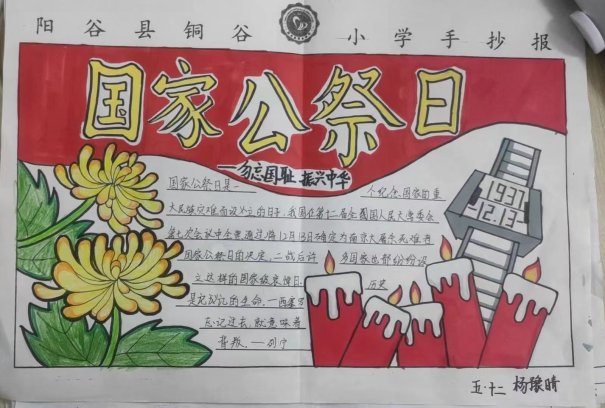 阳谷县铜谷小学手抄报
国家公祭日
一勿忘国耻 振兴中华
国家公祭日是一个纪念国家的重
大民族灾难而设立的日子,我国在第十二届全国人民代表大会常委会
第七次会议中全票通过将12月13日确定为南京大屠杀死难者
国家公祭日的决定,二战后许多国家也都纷纷设
立这样的国家级哀悼日 历史
是记忆的生命,
忘记过去,就意味着
背叛.一列宁
1937
12.13
五.十二 杨晴